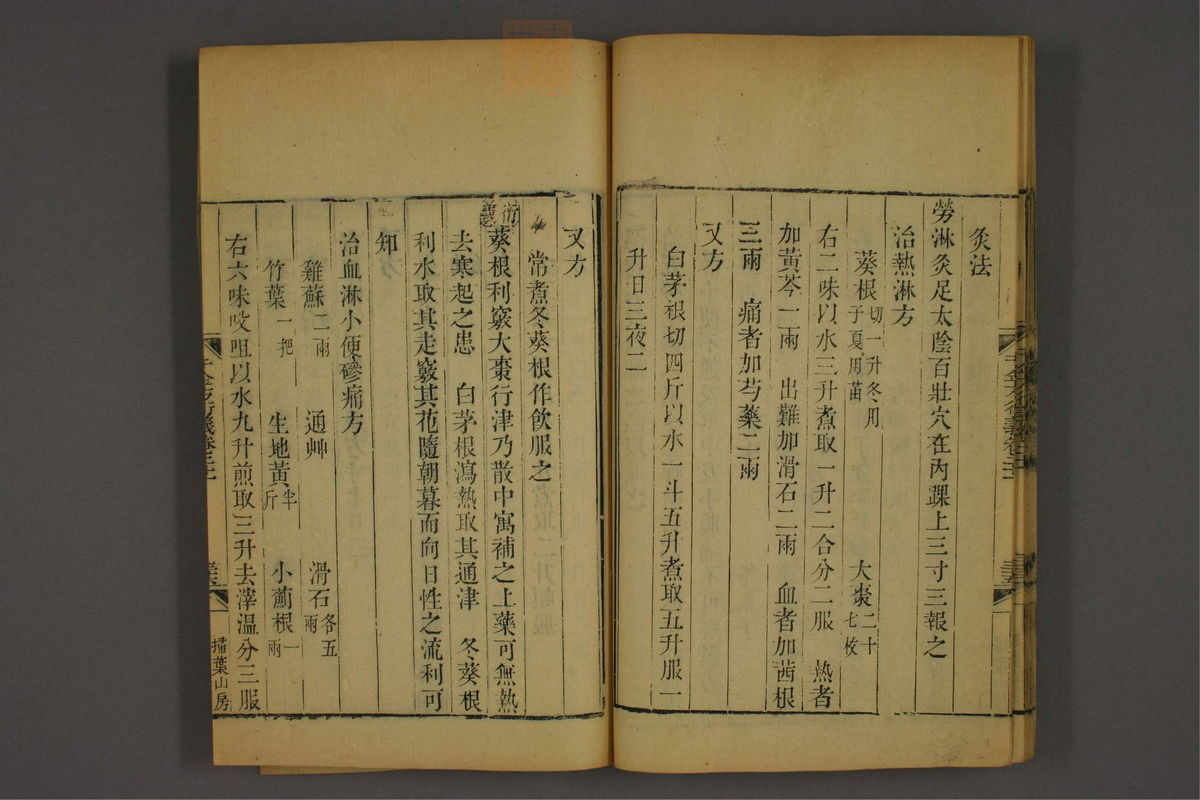 灸法
勞淋灸足太陰百壯穴在內踝上三寸三報之
治熱淋方
葵根切一升冬用子夏用苗 大棗二十七枚
右二味以水三升煮取一升二合分二服 熱者
加黃芩一兩 出難加滑石二兩 血者加茜根
三兩 痛者加芍藥二兩
又方
白茅根切四斤以水一斗五升煮取五升服一
升日三夜二
又方
常煮冬葵根作飲服之
衍義 葵根利竅大棗行津乃散中寓補之上藥可無熱
去寒起之患 白茅根瀉熱取其通津 冬葵根
利水取其走竅其花隨朝暮而向日性之流利可
知
治血淋小便磣痛方
雞蘇二兩 通艸 滑石各五兩
竹葉一把 生地黃半斤 小薊根一兩
右六味㕮咀以水九升煎取三升去滓溫分三服
千金方衍義卷
掃葉山房